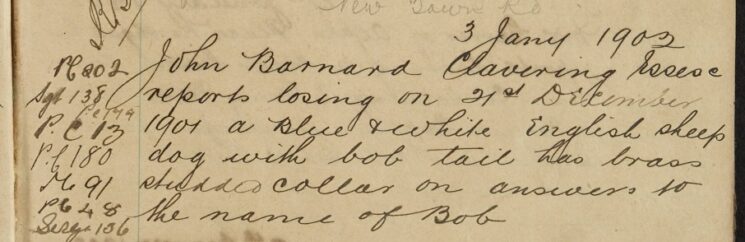 New Town Rd
3 Jany 1902
John Barnard Clavering Essex
reports losing on 21st December
1901 a Blue & White English sheep
dog with bob tail has brass
studded collar on answers to
the name of Bob
Pc 202
Sgt 138
Pc 199
P.C 13
P.C 180
Pc 91
Pc 48
Serg 136